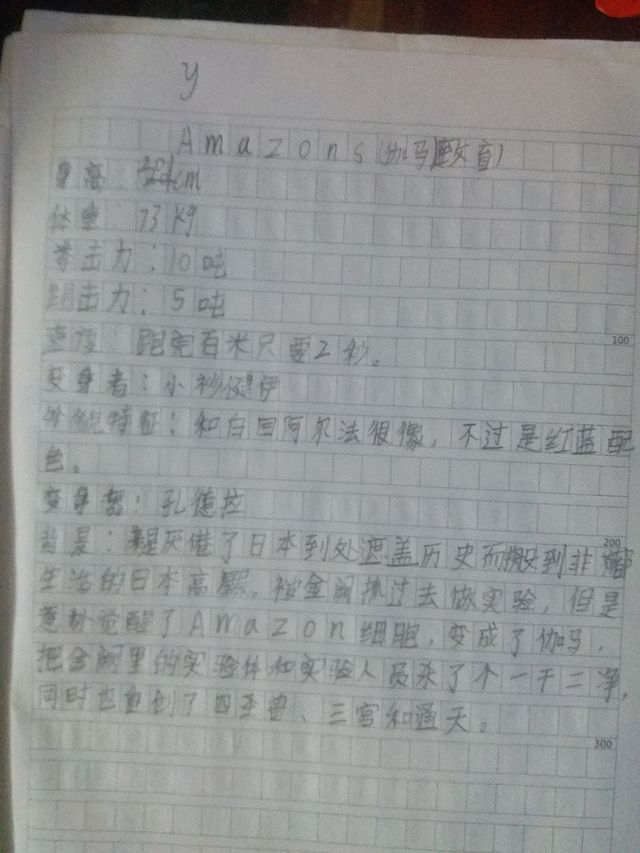 y
Amazons(伽马教育)
身高：cm
体重：73kg
拳击力：10吨
踢击力：5吨
速度：跑完百米只要2秒。
变身者：小衫伊
外貌特征：和白回阿尔法很像，不过是红蓝配
色。
变身者：孔德拉
背景：厌倦了日本到处遮盖历史而搬到非洲
生活的日本高。被金阁抓过去做实验，但是
意外觉醒了Amazon细胞，变成了伽马，
把金阁里的实验体和实验人员杀了个一干二净，
同时也重创了四圣兽、三宫和通天。
100
200
300